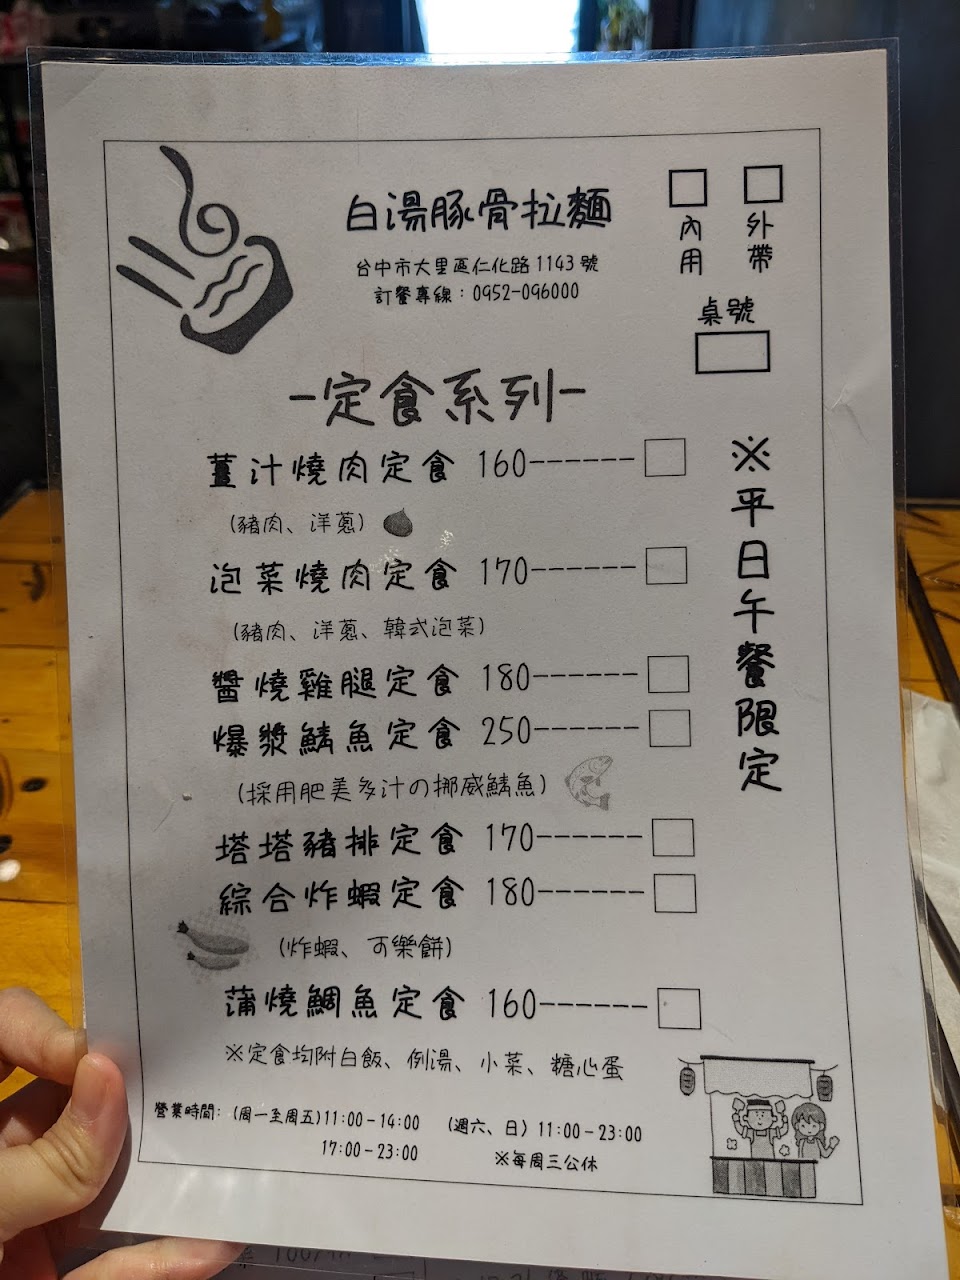 白湯豚骨拉麵
台中市大里區仁化路1143號
訂餐專線：0952-096000
內用
外帶
桌號
-定食系列-
薑汁燒肉定食 160------
(豬肉、洋蔥)
泡菜燒肉定食 170------
(豬肉、洋蔥、韓式泡菜)
醬燒雞腿定食 180------
爆漿鯖魚定食 250------
(採用肥美多汁の挪威鯖魚)
塔塔豬排定食 170------
綜合炸蝦定食 180------
(炸蝦、可樂餅)
蒲燒鯛魚定食 160------
※定食均附白飯、例湯、小菜、糖心蛋
※平日午餐限定
營業時間：(周一至周五)11:00-14:00 (週六、日) 11:00-23:00
17:00-23:00 ※每周三公休